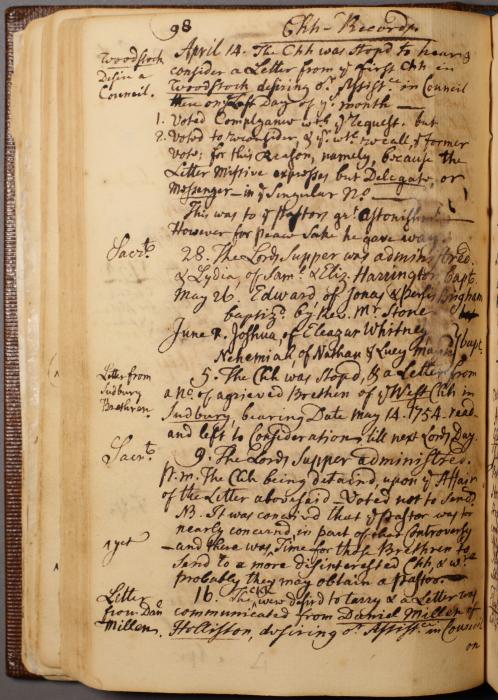 98 Chh-Records.
Woodstock
Desire a
Council.
April 14. The Chh was Stop'd to hear &
consider a Letter from ye First Chh in
Woodstock desiring or Assistce in Council
there on last Day of ye month
1. Voted Complyance wth ye Request. but
2. Voted to reconsider, & wth recall ye former
Vote; for this Reason, namely, because the
Letter Missive expresses but Delegate, or
Messenger in ye Singular No
This was to ye Pastors grt Astonishmt
However for peace Sake he gave way.
Sacrt.
28. The Lords Supper was administred.
& Lydia, of Saml & Eliz. Harrington bapt.
May 26. Edward of Jonas & Brigham
baptizd by Rev. Mr. Stone
June 2. Joshua of Eleazar Whitney
Nehemiah, of Nathan & Lucy bapt.
Letter from
Sudbury
Brethren.
5. The Chh was Stop'd, & a Letter from
a No. of agrieved Brethren of ye West Chh in
Sudbury, bearing Date May 14. 1754. read
and left to Consideration till next Lords Day.
Sacrt.
9. The Lords Supper administred.
P.M. The Chh being detaind, upon ye Affair
of the Letter abovesaid Voted not to Send.
NB. It was conceived that ye Pastor was too
nearly concernd in part of their Controversy
and there was Time for those Brethren to
yet
Send to a more disinterested Chh, &
probably they may obtain a Pastor
Letter
from Danl
Millen.
16. The Chh were desird to tarry & a Letter was
communicated from Daniel Millen of
Holliston, desiring or Assistce in Council
on